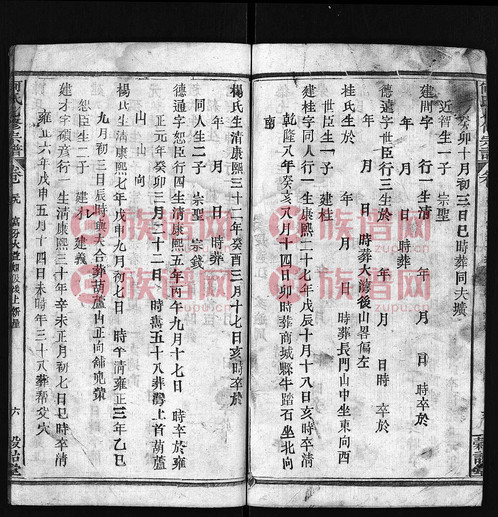 癸卯十月初三日巳時葬同夫壙
近智生一子 宗聖
建開字 行一生清 年 月 日 時卒於
年 月 日 時葬
德 字世臣行三生於 年 月 日 時 卒於
年 月 日 時葬大灣後山畧偏左
桂氏生於 年 月 日 時葬長門山中坐東向西
世臣生一子 建桂
建桂字同人行一生清康熙二十七年戊辰十月十八日亥時卒於清
乾隆八年癸亥八月十四日卯時葬商城縣牛踏石坐北向
南
楊氏生清康熙三十二年癸酉三月十七日亥時卒於
年 月 日 時葬
同人生二子 宗聖 宗錢
德通字恕臣行四生清康熙五年丙午九月十七日 時卒於雍
正元年癸卯三月二十二日 時壽五十八葬灣上首葫蘆
山 山 向
楊氏生清康熙七年戊申九月初七日 時卒清雍正三年乙巳
九月初三日辰時 夫合葬葫蘆山正向 塋
恕臣生二子 建才 建義
建才字碩彥行一生清康熙三十年辛未正月初七日巳時卒清
雍正六年戊申五月十四日未時年三十八葬 父穴
六
穀詒堂
族谱网
zupu.cn
族谱网
zupu.cn
族谱网
zupu.cn
族谱网
zupu.cn